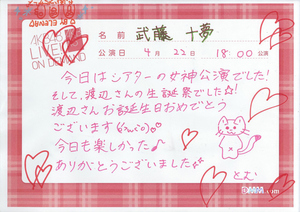 AKB48
LIVE!!
ON DEMAND
名前 武藤 十夢
公演日 4月 22日 18:00 公演
今日はシアターの女神公演でした!
そして、渡辺さんの生誕祭でした☆!
渡辺さんお誕生日おめでとう
ございます(*´ω`*)♡
今日も楽しかった♪
ありがとうございました☆
とむ
DMM.com